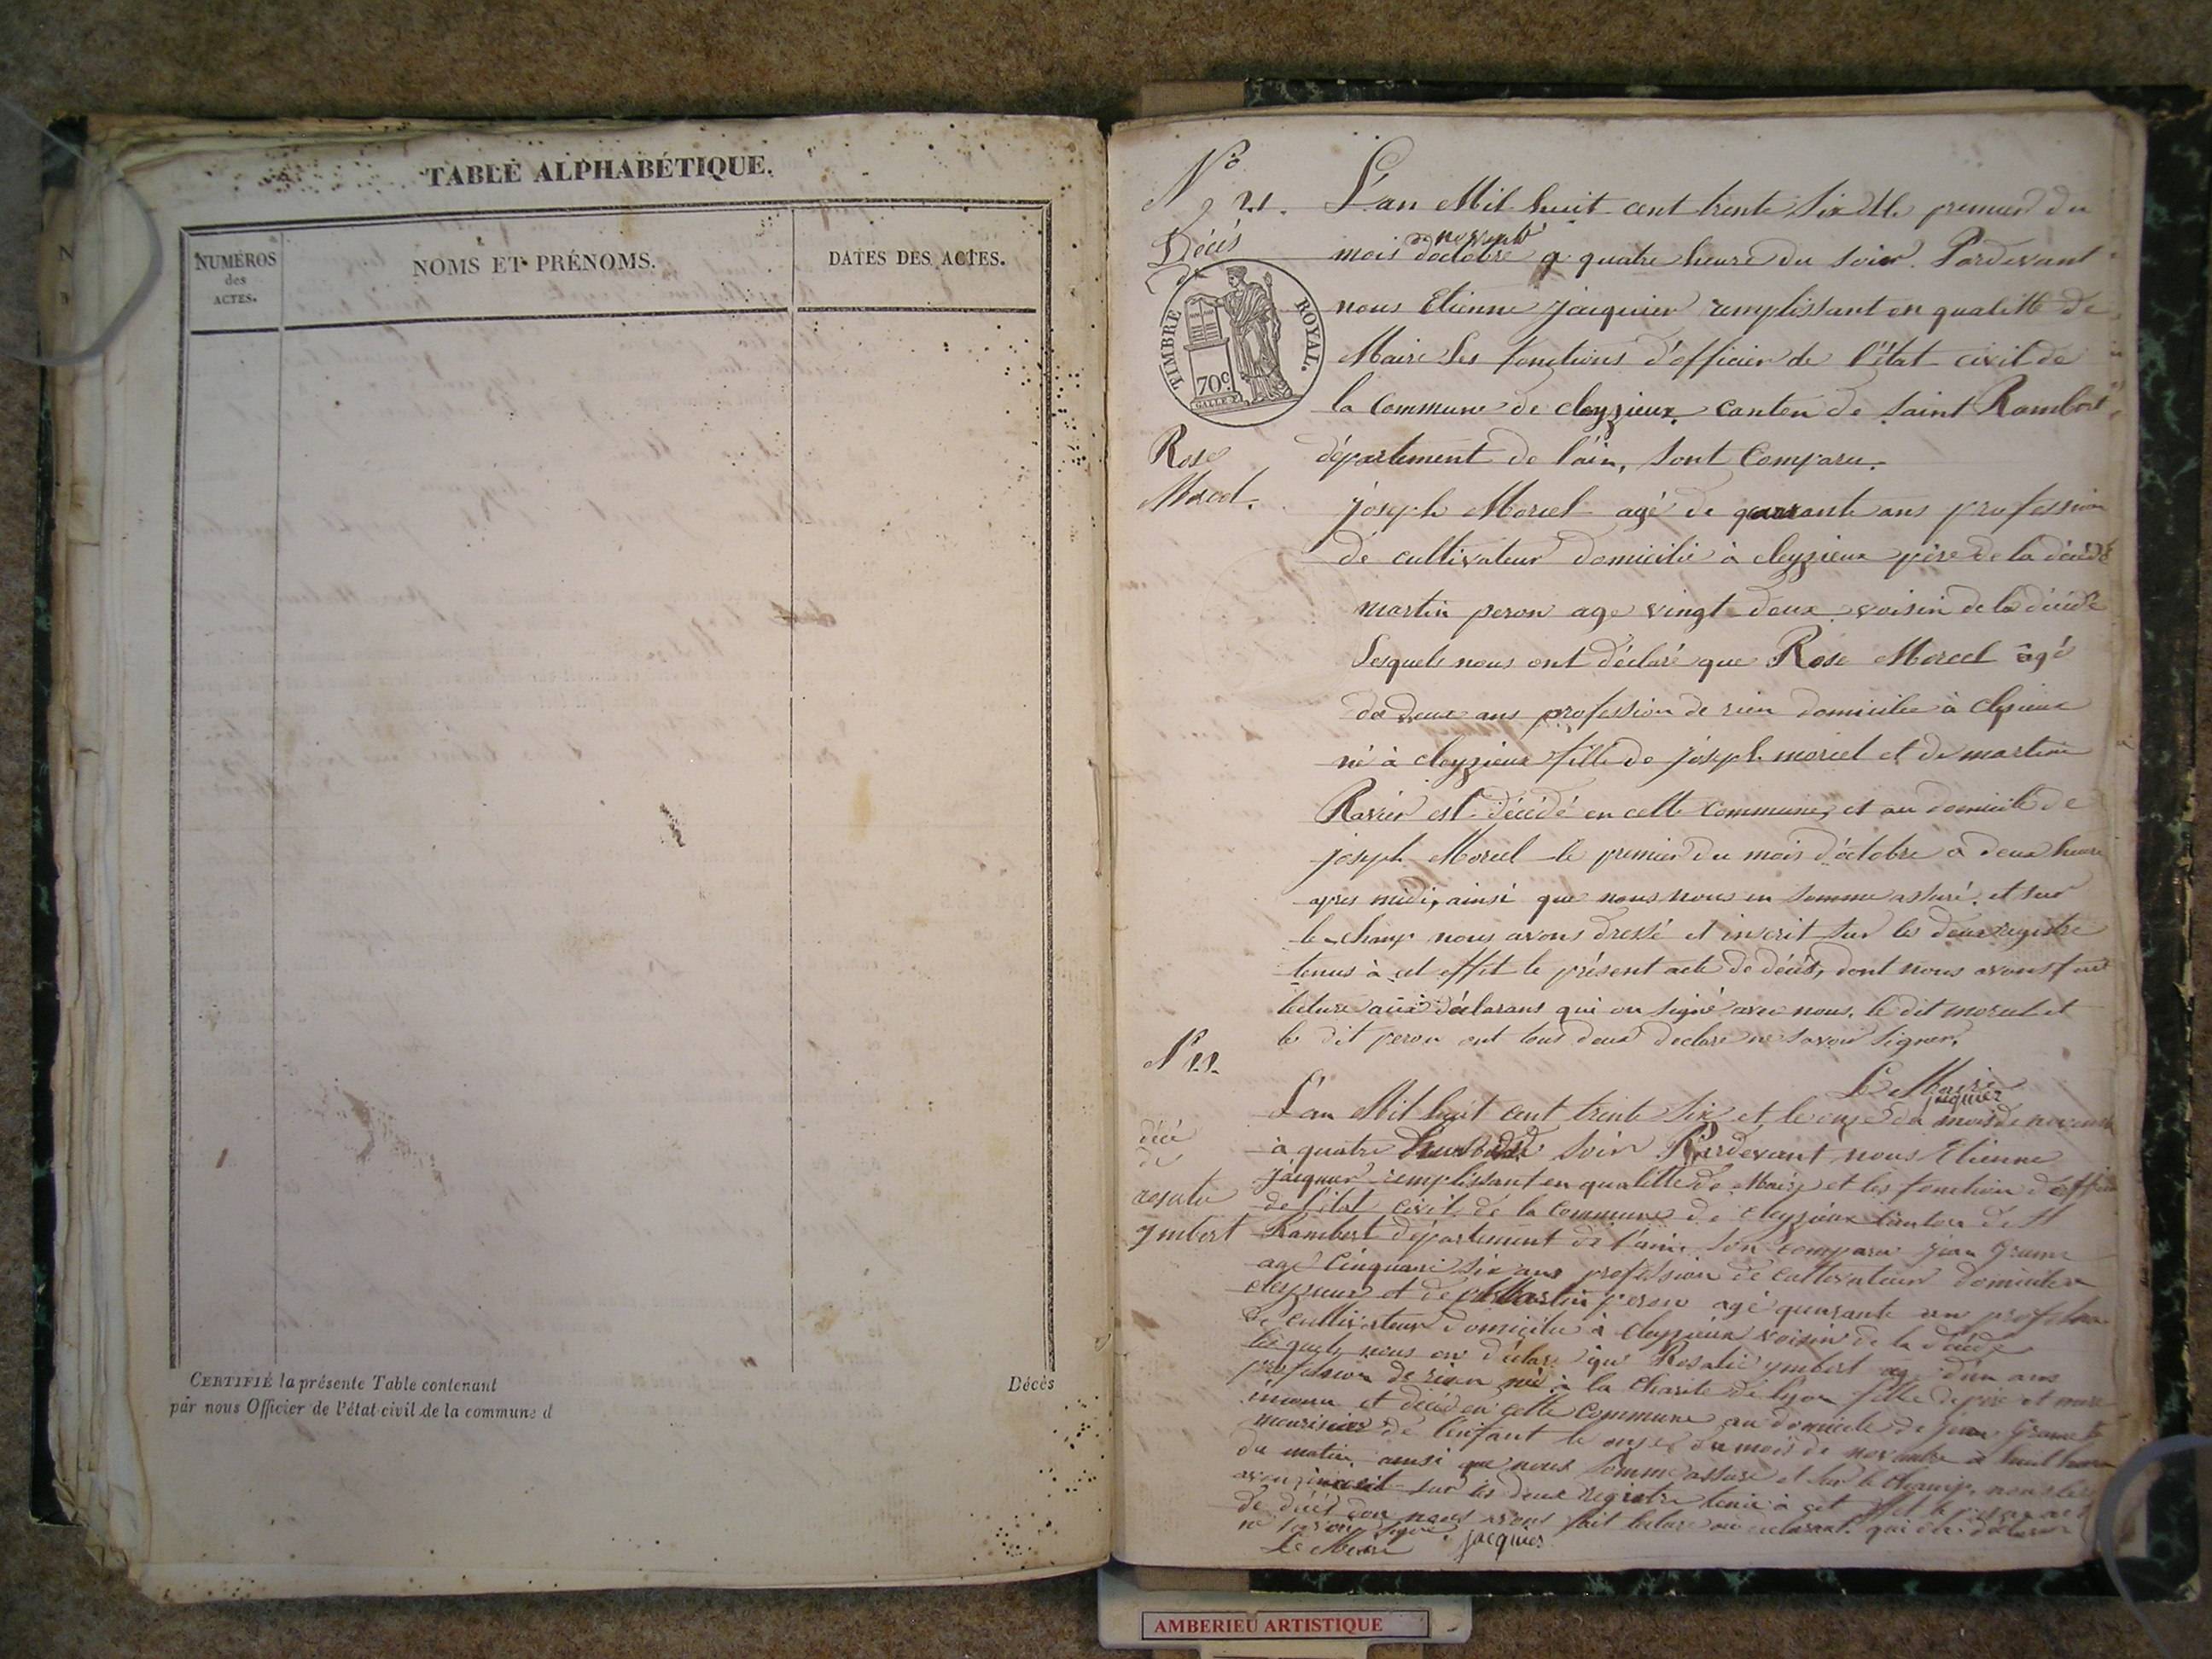 TABLE ALPHABÉTIQUE.
NUMÉROS
des
ACTES.
NOMS ET PRÉNOMS.
DATES DES ACTES.
CERTIFIÉ la présente Table contenant
Décès
par nous Officier de l'état civil de la commune d
No
21.
Décès
de
TIMBRE ROYAL.
70c
Rose
Morcel.
L'an Mil huit cent trente Six Et le premier du
de novembre
mois d'octobre a quatre heure du soir. Pardevant
nous Etienne jacquier remplissant en qualitté de
Maire Les fonctions d'officier de l'état civil de
la Commune de cleyzieux canton de Saint Rambert
département de l'ain, sont Comparu.
joseph Morcel agé de quarante ans profession
de cultivateur domicilié à cleyzieux père de la décédé
martin peron age vingt deux voisin de la décédé
Lesquels nous ont déclaré que Rose Morcel âgé
de deux ans profession de rien domicilie à clesieux
né à cleyzieux fille de joseph morcel et de martine
Ravier est décédé en cette commune, et au domicile de
joseph Morcel le premier du mois d'octobre a deux heure
apres midi, ainsi que nous nous en somme assuré, et sur
le champ nous avons dressé et inscrit sur les deux registre
tenus à cet effet le présent acte de décès, dont nous avons fait
lecture aux déclarans qui on signé avec nous, le dit morcel et
le dit peron ont tous deux declare ne savoir signer,
Le Maire
jacquier
N 22
décé
de
rosalie
ymbert
L'an Mil huit cent trente Six et le onze du mois de novembre
à quatre heures du soir Pardevant nous Etienne
jacquier remplissant en qualitté de Maire et les fonction d'officier
de l'état civil de la Commune de cleyzieux canton de St
Rambert département de l'ain. Son comparu jean
agé Cinquante six ans profession de cultivateur domicilie a
cleyzieux et de Martin peron agé quarante un profession
de cultivateur domicilie à cleyzieux voisin de la décédé
lesquels nous on déclaré que Rosalie ymbert agé d'un ans
profession de rien née à la Charite de lyon fille de père et mere
inconu et décédé en cette commune au domicile de jean
nourisier de l'enfant le onze du mois de novembre à huit heure
du matin. ainsi que nous somme assuré et sur le champ, nous
avons inscrit sur les deux registre tenu à cet effet le present acte
de décès don nous avons fait lecture au declarant qui on déclare
ne savoir signé
Le Maire jacquier
AMBERIEU ARTISTIQUE